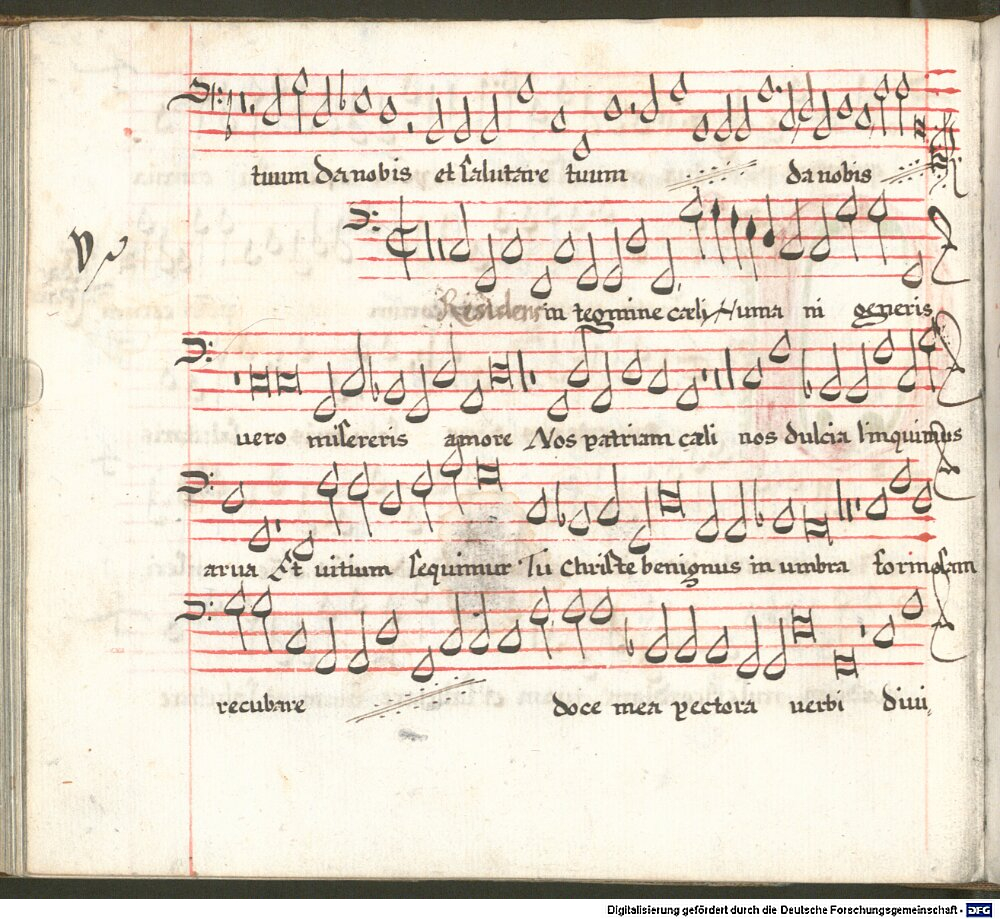 tuum da nobis et salutare tuum da nobis
Residens in tegmine cæli Huma ni generis
uero misereris amore Nos patriam cæli nos dulcia linquimus
arua Et uitium sequimur Tu christe benignus in umbra formosam
recubare doce mea pectora uerbi diui,
Digitalisierung gefördert durch die Deutsche Forschungsgemeinschaft - DFG